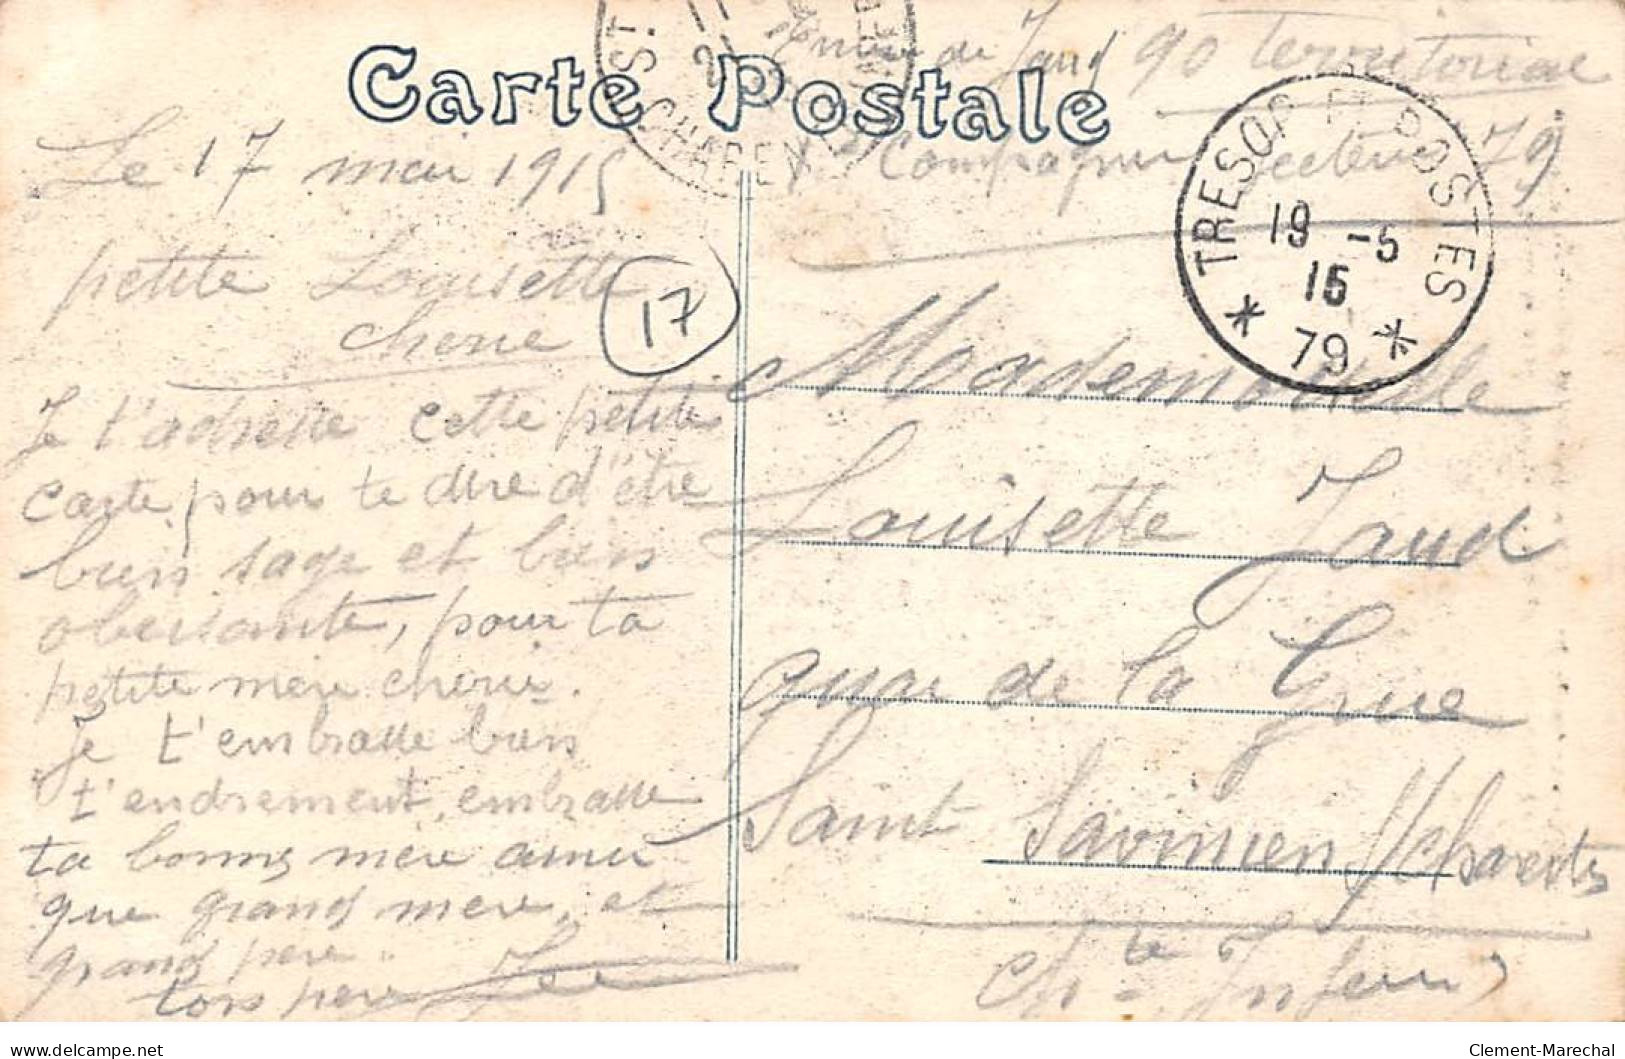 Carte Postale
de Jaud 90 Territorial
Compagnie Secteur 79
TRESOR ET POSTES
19 -5
15
* 79 *
ST
CHAREN
Le 17 mai 1915
petite Louisette
cherie
17
Je t'adresse cette petite
carte pour te dire d'être
bien sage et bien
obeissante, pour ta
petite mere cherie.
Je t'embrasse bien
t'endrement, embrasse
ta bonne mere ainsi
que grand mere, et
grand pere.
ton pere
Mademoiselle
Louisette Jaud
quai de la Grue
Saint Savinien s/ Charente
Ch-te Infer
delcampe.net
Clement-Marechal